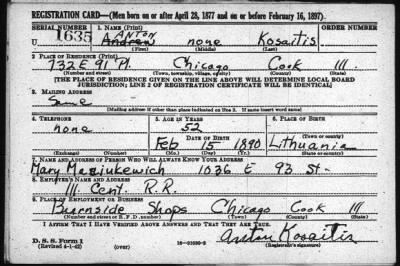 REGISTRATION CARD—(Men born on or after April 28, 1877 and on or before February 16, 1897)
SERIAL NUMBER 1. NAME (Print) ORDER NUMBER
ANTON
U 1635 Andrew none Kosaitis
(First) (Middle) (Last)
2. PLACE OF RESIDENCE (Print)
732 E 91 Chicago Cook Ill.
(Number and street) (Town, township, village, or city) (County) (State)
[THE PLACE OF RESIDENCE GIVEN ON THE LINE ABOVE WILL DETERMINE LOCAL BOARD
JURISDICTION; LINE 2 OF REGISTRATION CERTIFICATE WILL BE IDENTICAL]
3. MAILING ADDRESS
Same
[Mailing address if other than place indicated on line 2. If same insert word same]
4. TELEPHONE 5. AGE IN YEARS 6. PLACE OF BIRTH
none 52
DATE OF BIRTH (Town or county)
Feb 15 1890 Lithuania
(Exchange) (Number) (Mo.) (Day) (Yr.) (State or country)
7. NAME AND ADDRESS OF PERSON WHO WILL ALWAYS KNOW YOUR ADDRESS
Mary 1036 E 93 St-
8. EMPLOYER'S NAME AND ADDRESS
Ill. Cent. R.R.
9. PLACE OF EMPLOYMENT OR BUSINESS
Burnside Shops Chicago Cook Ill
(Number and street or R. F. D. number) (Town) (County) (State)
I AFFIRM THAT I HAVE VERIFIED ABOVE ANSWERS AND THAT THEY ARE TRUE.
D. S. S. Form 1
(Revised 4-1-42) (over) Anton Kosaitis
(Registrant's signature)